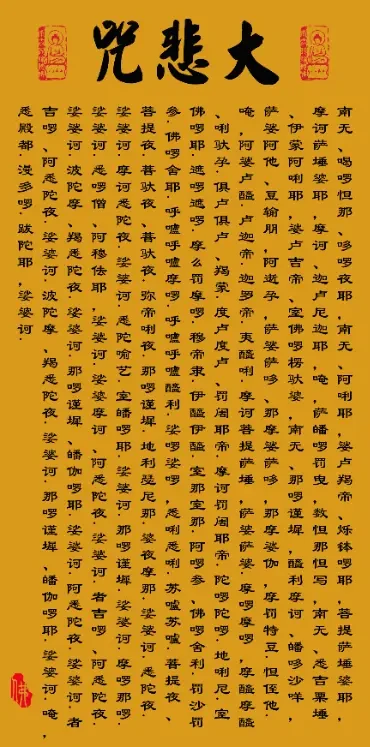 大悲咒
南无、喝啰怛那、哆啰夜耶，南无、阿唎耶，婆卢羯帝、烁钵啰耶，菩提萨埵婆耶，
摩诃萨埵婆耶，摩诃、迦卢尼迦耶，唵，萨皤啰罚曳，数怛那怛写，南无、悉吉栗埵
、伊蒙阿唎耶，婆卢吉帝、室佛啰楞驮婆，南无、那啰谨墀，醯利摩诃、皤哆沙咩，
萨婆阿他、豆输朋，阿逝孕，萨婆萨哆、那摩婆萨哆，那摩婆伽，摩罚特豆·怛侄他·
唵，阿婆卢醯·卢迦帝·迦罗帝·夷醯唎·摩诃菩提萨埵，萨婆萨婆·摩啰摩啰，摩醯摩醯
、唎驮孕·俱卢俱卢、羯蒙·度卢度卢、罚阇耶帝·摩诃罚阇耶帝·陀啰陀啰·地唎尼·室
佛啰耶·遮啰遮啰·摩么罚摩啰·穆帝隶·伊醯伊醯·室那室那·阿啰参、佛啰舍利·罚沙罚
参·佛啰舍耶·呼嚧呼嚧摩啰·呼嚧呼嚧醯利·娑啰娑啰，悉唎悉唎·苏嚧苏嚧·菩提夜、
菩提夜·菩驮夜、菩驮夜·弥帝利夜·那啰谨墀·地利瑟尼那·婆夜摩那·娑婆诃·悉陀夜·
娑婆诃·摩诃悉陀夜·娑婆诃·悉陀喻艺·室皤啰耶·娑婆诃·那啰谨墀·娑婆诃·摩啰那啰·
娑婆诃·悉啰僧、阿穆佉耶，娑婆诃·娑婆摩诃、阿悉陀夜·娑婆诃·者吉啰、阿悉陀夜·
娑婆诃·波陀摩、羯悉陀夜·娑婆诃·那啰谨墀、皤伽啰耶·娑婆诃·阿悉陀夜·娑婆诃·者
吉啰、阿悉陀夜·娑婆诃·波陀摩、羯悉陀夜·娑婆诃·那啰谨墀、皤伽啰耶·娑婆诃·唵，
悉殿都·漫多啰·跋陀耶，娑婆诃·
佛